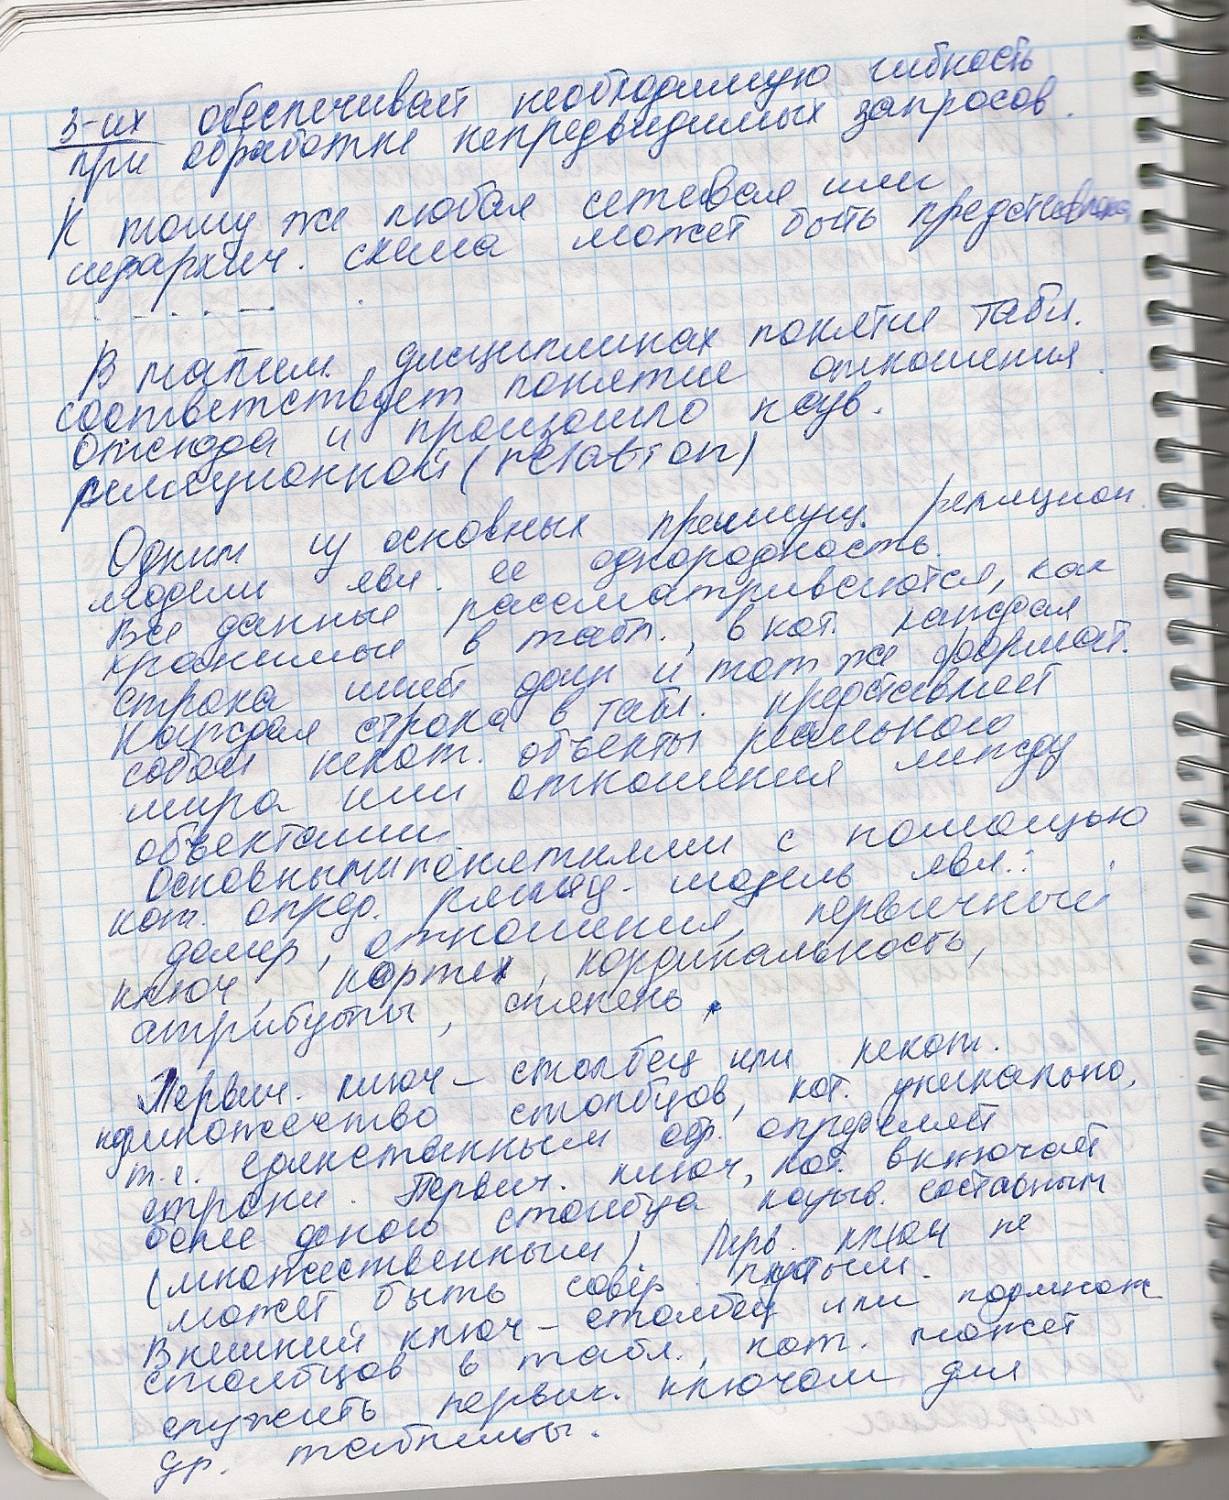 3-их обеспечивает необходимую гибкость
при обработке непредвидимых запросов.
К тому же любая сетевая или
иерархич. схема может быть представлена
. - . . - .
В матем. дисциплинах понятие табл.
соответствует понятие отношения.
отсюда и произошло назв.
реляционной (relation)
Одним из основных преимущ. реляцион.
модели явл. ее однородность.
Все данные рассматриваются, как
хранимые в табл., в кот. каждая
строка имеет один и тот же формат.
Каждая строка в табл. представляет
собой некот. объекты реального
мира или отношения между
объектами
Основными понятиями с помощью
кот. опред. реляц. модель явл.:
домен, отношения, первичный
ключ, кортеж, кардинальность,
атрибуты, степень.
Первич. ключ – столбец или некот.
подмножество столбцов, кот. уникально,
т.е. единственным обр. определяет
строки. Первич. ключ, кот. включает
более одного столбца назыв. составным
(множественным) Перв. ключ не
может быть совер. пустым.
Внешний ключ – столбец или подмнож
столбцов в табл., кот. может
служить первич. ключом для
др. таблицы.